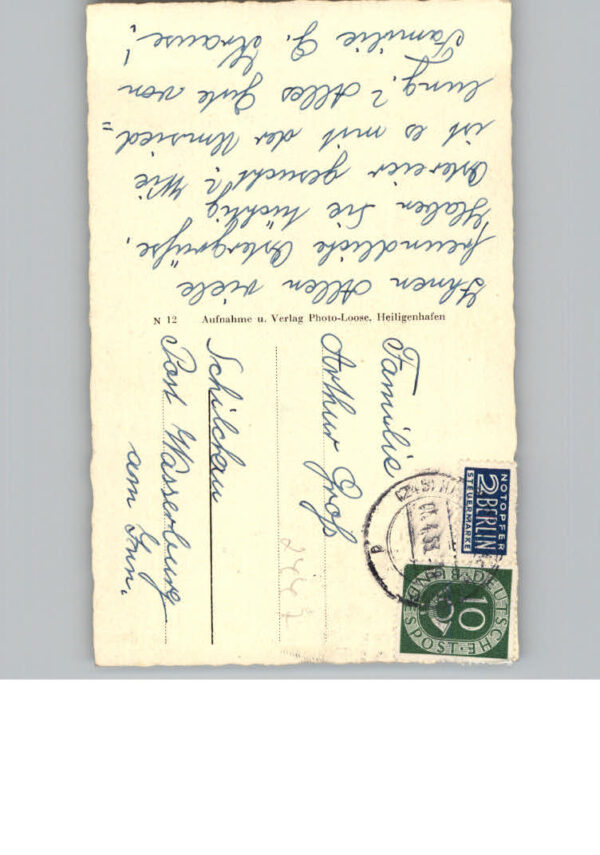 Ihnen Allen viele
freundliche Ostergrüße.
Haben Sie tüchtig
Ostereier gesucht? Wie
ist es mit der Umsied=
lung? Alles Gute von
Familie G. Krause!
N 12 Aufnahme u. Verlag Photo-Loose, Heiligenhafen
Familie
Arthur Groß
Schilchau
Post Wasserburg
am Inn.
NOTOPFER
2 BERLIN
STEUERMARKE
DEUTSCHE
BUNDESPOST
10